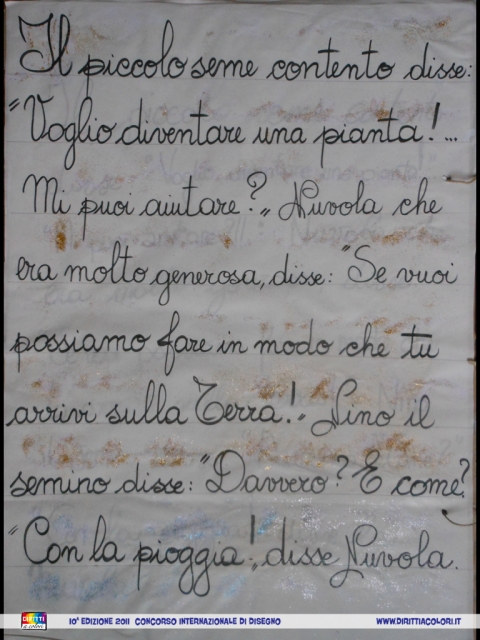 Il piccolo seme contento disse:
"Voglio diventare una pianta!...
Mi puoi aiutare?" Nuvola che
era molto generosa, disse: "Se vuoi
possiamo fare in modo che tu
arrivi sulla Terra!" Nino il
semino disse: "Davvero? E come?
"Con la pioggia!", disse Nuvola.
DIRITTI a colori 10ª EDIZIONE 2011 CONCORSO INTERNAZIONALE DI DISEGNO WWW.DIRITTIACOLORI.IT